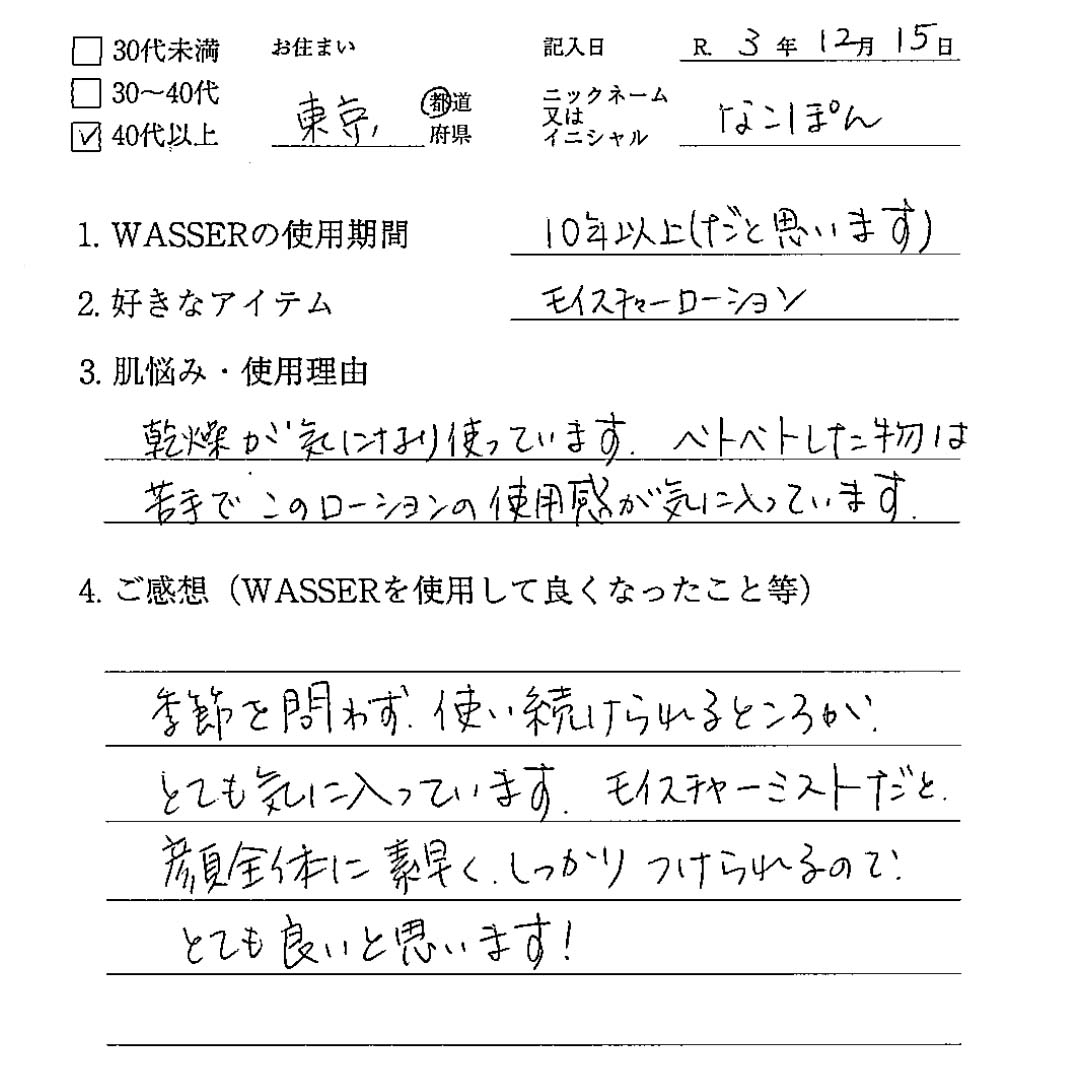 □ 30代未満 お住まい 記入日 R. 3年 12月 15日
□ 30～40代 東京 都道府県 ニックネーム又はイニシャル なこぽん
☑ 40代以上
1. WASSERの使用期間 10年以上(だと思います)
2. 好きなアイテム モイスチャーローション
3. 肌悩み・使用理由
乾燥が気になり使っています. ベトベトした物は
苦手でこのローションの使用感が気に入っています.
4. ご感想（WASSERを使用して良くなったこと等）
季節を問わず、使い続けられるところが、
とても気に入っています. モイスチャーミストだと、
顔全体に素早く、しっかりつけられるので、
とても良いと思います!